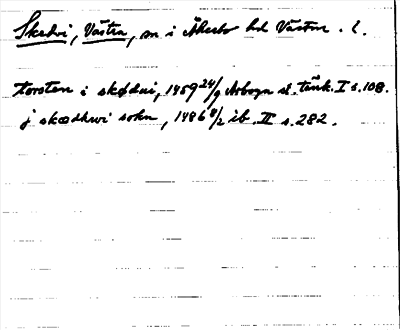 Skedvi, Västra, sn i Åkerbo hd Västm. l.
torsten i skødwi, 1459 24/9 Arboga st. tänk. I s. 108.
j skædhwi sokn, 1486 8/2 ib. II s. 282.